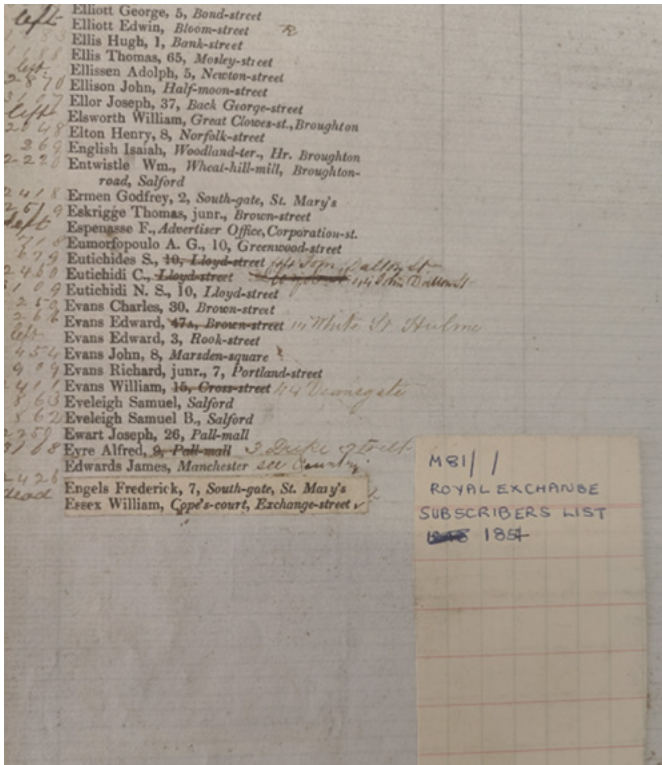 left Elliott George, 5, Bond-street
Elliott Edwin, Bloom-street
Ellis Hugh, 1, Bank-street
Ellis Thomas, 65, Mosley-street
left Ellissen Adolph, 5, Newton-street
2870 Ellison John, Half-moon-street
Ellor Joseph, 37, Back George-street
left Elsworth William, Great Clowes-st., Broughton
2048 Elton Henry, 8, Norfolk-street
269 English Isaiah, Woodland-ter., Hr. Broughton
2220 Entwistle Wm., Wheat-hill-mill, Broughton-
road, Salford
2418 Ermen Godfrey, 2, South-gate, St. Mary's
2519 Eskrigge Thomas, junr., Brown-street
left Espenasse F., Advertiser Office, Corporation-st.
718 Eumorfopoulo A. G., 10, Greenwood-street
679 Eutichides S., 10, Lloyd-street John Dalton St.
2460 Eutichidi C., Lloyd-street 44 John Dalton St
3109 Eutichidi N. S., 10, Lloyd-street
250 Evans Charles, 30. Brown-street
266 Evans Edward, 47A, Brown-street White St Hulme
left Evans Edward, 3, Rook-street
454 Evans John, 8, Marsden-square
909 Evans Richard, junr., 7, Portland-street
411 Evans William, 15, Cross-street 44 Deansgate
863 Eveleigh Samuel, Salford
862 Eveleigh Samuel B., Salford
2259 Ewart Joseph, 26, Pall-mall
3108 Eyre Alfred, 9, Pall-mall 3 Duke street
Edwards James, Manchester see Country
2426 Engels Frederick, 7, South-gate, St. Mary's
dead Essex William, Cope's-court, Exchange-street
M81/1
ROYAL EXCHANGE
SUBSCRIBERS LIST
1854